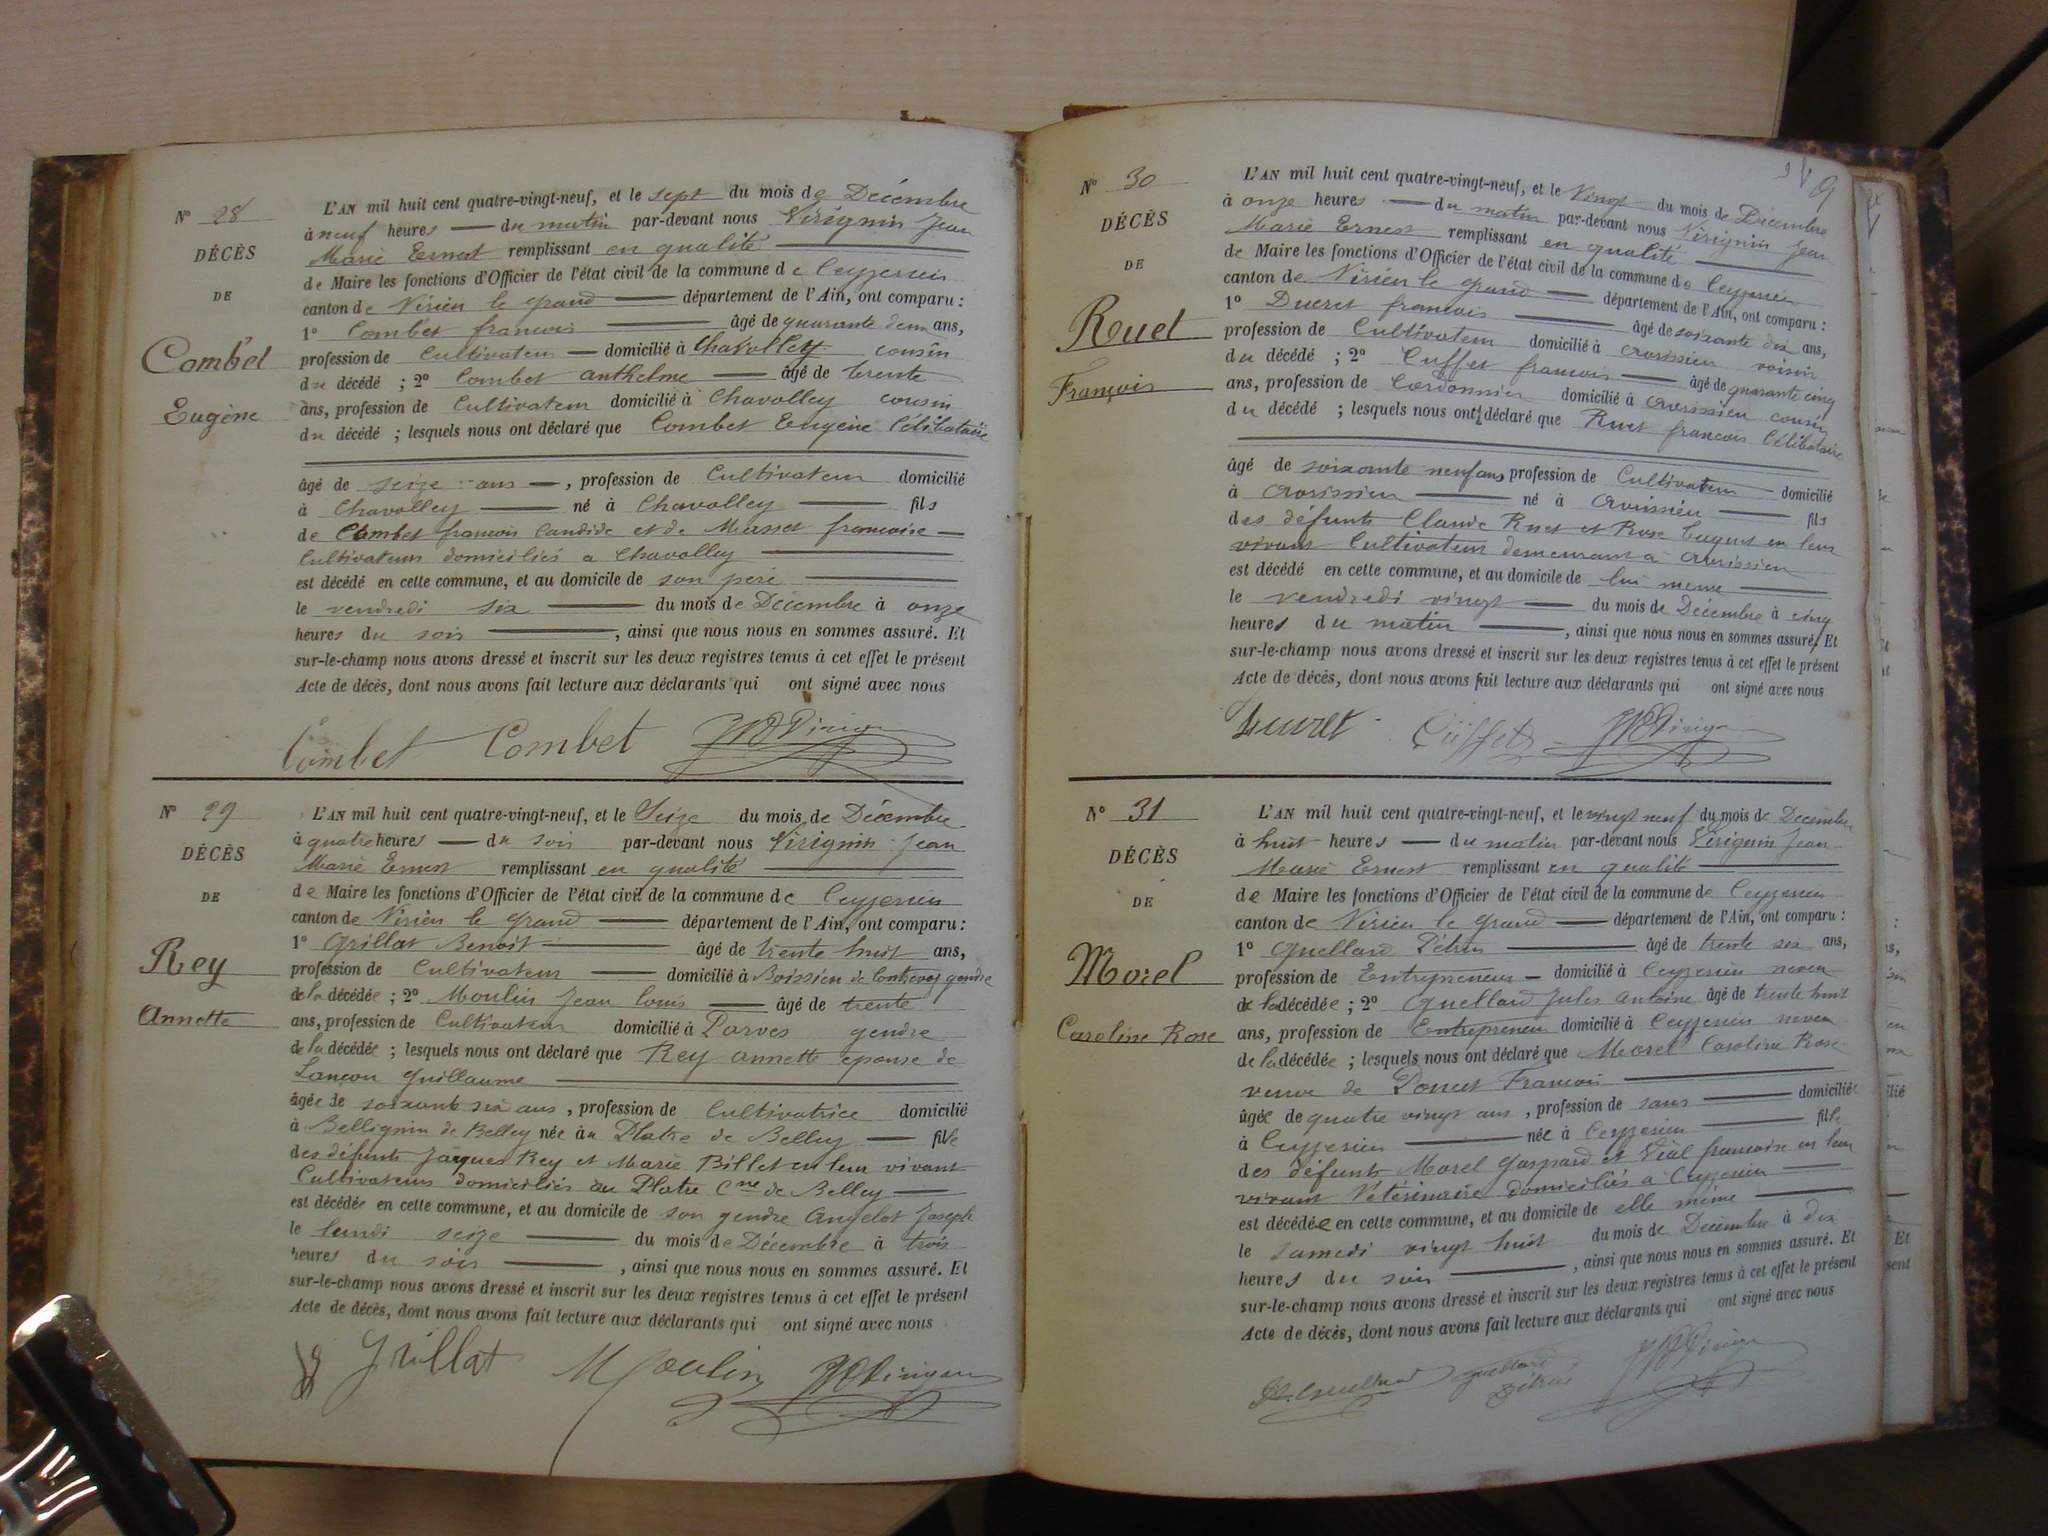 N° 28
DÉCÈS
DE
Combet
Eugène
L'AN mil huit cent quatre-vingt-neuf, et le sept du mois de Décembre
à neuf heures — du matin par-devant nous Virignin Jean
Marie Ernest remplissant en qualité
de Maire les fonctions d'Officier de l'état civil de la commune de Ceyzerieu
canton de Virieu le grand — département de l'Ain, ont comparu :
1° Combet francois — âgé de quarante deux ans,
profession de Cultivateur — domicilié à Chavolley cousin
du décédé ; 2° Combet anthelme — âgé de trente
ans, profession de Cultivateur domicilié à Chavolley cousin
du décédé ; lesquels nous ont déclaré que Combet Eugène Célibataire
âgé de seize ans —, profession de Cultivateur domicilié
à Chavolley — né à Chavolley — fils
de Combet francois Candide et de Masset francoise —
Cultivateurs domiciliés a Chavolley —
est décédé en cette commune, et au domicile de son père —
le vendredi six — du mois de Décembre à onze
heures du soir —, ainsi que nous nous en sommes assuré. Et
sur-le-champ nous avons dressé et inscrit sur les deux registres tenus à cet effet le présent
Acte de décès, dont nous avons fait lecture aux déclarants qui ont signé avec nous
Combet Combet
N° 29
DÉCÈS
DE
Rey
Annette
L'AN mil huit cent quatre-vingt-neuf, et le Seize du mois de Décembre
à quatre heures — du soir par-devant nous Virignin Jean
Marie Ernest remplissant en qualité
de Maire les fonctions d'Officier de l'état civil de la commune de Ceyzerieu
canton de Virieu le grand — département de l'Ain, ont comparu :
1° Grillat Benoit — âgé de trente huit ans,
profession de Cultivateur — domicilié à Boissieu de Contrevoz gendre
de la décédée ; 2° Moulin Jean louis — âgé de trente
ans, profession de Cultivateur domicilié à Parves gendre
de la décédée ; lesquels nous ont déclaré que Rey annette epouse de
Lançon Guillaume —
âgée de soixante six ans, profession de Cultivatrice domicilié
à Bellignin de Belley née au Platre de Belley — fille
des défunts Jaques Rey et Marie Billet en leur vivant
Cultivateurs domiciliés au Platre Cne de Belley —
est décédée en cette commune, et au domicile de son gendre Angelot Joseph
le lundi seize — du mois de Décembre à trois
heures du soir —, ainsi que nous nous en sommes assuré. Et
sur-le-champ nous avons dressé et inscrit sur les deux registres tenus à cet effet le présent
Acte de décès, dont nous avons fait lecture aux déclarants qui ont signé avec nous
Grillat Moulin
N° 30
DÉCÈS
DE
Rouet
François
L'AN mil huit cent quatre-vingt-neuf, et le Vingt du mois de Décembre
à onze heures — du matin par-devant nous Virignin Jean
Marie Ernest remplissant en qualité
de Maire les fonctions d'Officier de l'état civil de la commune de Ceyzerieu
canton de Virieu le grand — département de l'Ain, ont comparu :
1° Ducret francois — âgé de soixante dix ans,
profession de Cultivateur domicilié à Avrissieu voisin
du décédé ; 2° Cuffet francois — âgé de quarante cinq
ans, profession de Cordonnier domicilié à Avrissieu cousin
du décédé ; lesquels nous ont déclaré que Ruet francois Célibataire
âgé de soixante neuf ans profession de Cultivateur domicilié
à Avrissieu — né à Avrissieu — fils
des défunts Claude Ruet et Rose en leur
vivant Cultivateurs demeurant à Avrissieu
est décédé en cette commune, et au domicile de lui meme —
le vendredi vingt — du mois de Décembre à cinq
heures du matin —, ainsi que nous nous en sommes assuré. Et
sur-le-champ nous avons dressé et inscrit sur les deux registres tenus à cet effet le présent
Acte de décès, dont nous avons fait lecture aux déclarants qui ont signé avec nous
Ducret Cuffet
N° 31
DÉCÈS
DE
Morel
Caroline Rose
L'AN mil huit cent quatre-vingt-neuf, et le vingt neuf du mois de Décembre
à huit heures — du matin par-devant nous Virignin Jean
Marie Ernest remplissant en qualité —
de Maire les fonctions d'Officier de l'état civil de la commune de Ceyzerieu
canton de Virieu le grand — département de l'Ain, ont comparu :
1° Guellard Pétrus — âgé de trente six ans,
profession de Entrepreneur — domicilié à Ceyzerieu neveu
de la décédée ; 2° Guellard Jules Antoine âgé de trente huit
ans, profession de Entrepreneur domicilié à Ceyzerieu neveu
de la décédée ; lesquels nous ont déclaré que Morel Caroline Rose
veuve de Francois —
âgée de quatre vingt ans, profession de sans — domiciliée
à Ceyzerieu — née à Ceyzerieu — fille
des défunt Morel Gaspard et Vial francoise en leur
vivant Vétérinaire domiciliés a Ceyzerieu —
est décédée en cette commune, et au domicile de elle même —
le samedi vingt huit du mois de Décembre à dix
heures du soir —, ainsi que nous nous en sommes assuré. Et
sur-le-champ nous avons dressé et inscrit sur les deux registres tenus à cet effet le présent
Acte de décès, dont nous avons fait lecture aux déclarants qui ont signé avec nous
Guellard
Pétrus